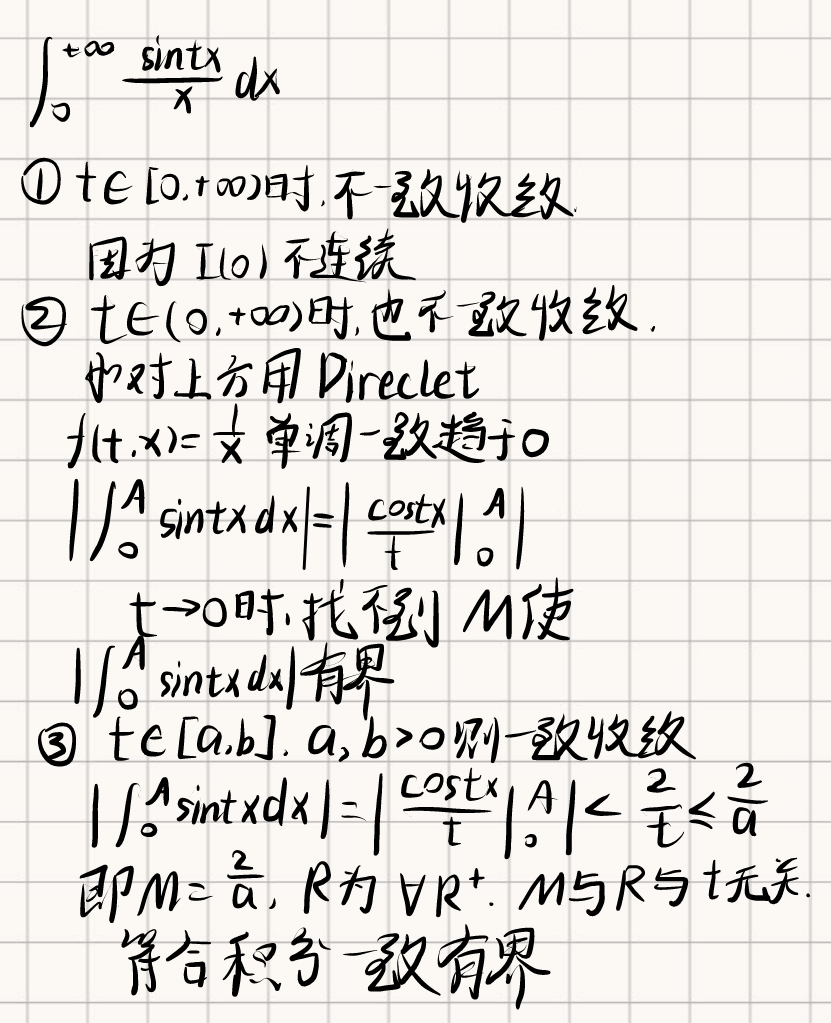 ∫₀^{+∞} sintx/x dx
① t∈[0,+∞)时,不一致收敛
因为 I(0) 不连续
② t∈(0,+∞)时,也不一致收敛.
也对上方用 Direclet
f(t,x)=1/x 单调一致趋于0
|∫₀^A sintxdx|=|costx/t |₀^A|
t→0时,找不到 M使
|∫₀^A sintxdx|有界
③ t∈[a,b]. a,b>0则一致收敛
|∫₀^A sintxdx|=|costx/t |₀^A|< 2/t ≤ 2/a
即M=2/a, R为 ∀R⁺. M与R与t无关.
符合积分一致有界